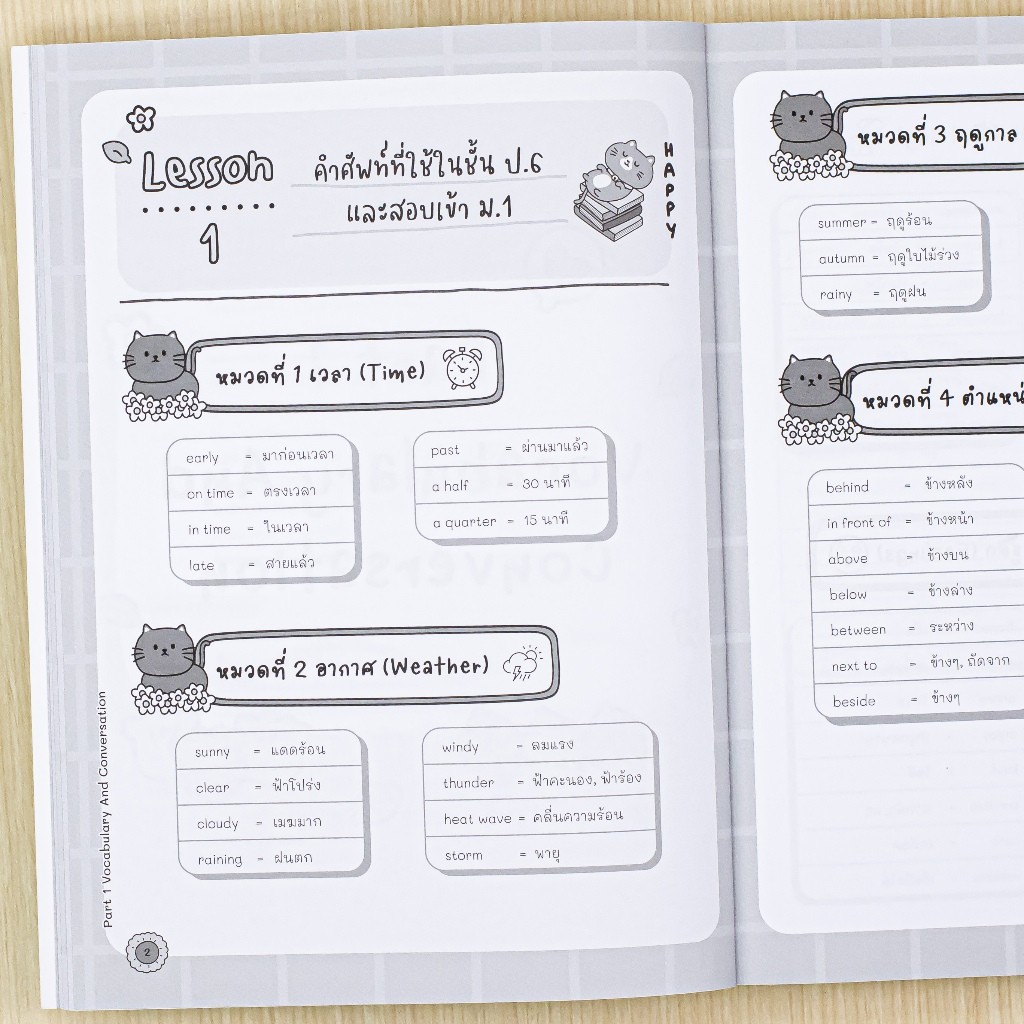 Lesson
1
คำศัพท์ที่ใช้ในชั้น ป.6
และสอบเข้า ม.1
HAPPY
หมวดที่ 1 เวลา (Time)
early = มาก่อนเวลา
on time = ตรงเวลา
in time = ในเวลา
late = สายแล้ว
past = ผ่านมาแล้ว
a half = 30 นาที
a quarter = 15 นาที
หมวดที่ 2 อากาศ (Weather)
sunny = แดดร้อน
clear = ฟ้าโปร่ง
cloudy = เมฆมาก
raining = ฝนตก
windy = ลมแรง
thunder = ฟ้าคะนอง, ฟ้าร้อง
heat wave = คลื่นความร้อน
storm = พายุ
Part 1 Vocabulary And Conversation
2
หมวดที่ 3 ฤดูกาล
summer = ฤดูร้อน
autumn = ฤดูใบไม้ร่วง
rainy = ฤดูฝน
หมวดที่ 4
behind = ข้างหลัง
in front of = ข้างหน้า
above = ข้างบน
below = ข้างล่าง
between = ระหว่าง
next to = ข้างๆ, ถัดจาก
beside = ข้างๆ